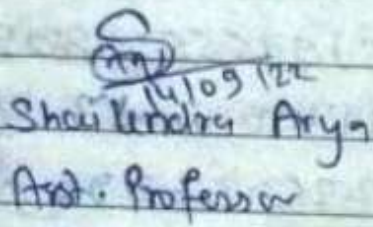 14/09/22
Shailendra Arya
Asst. Professor